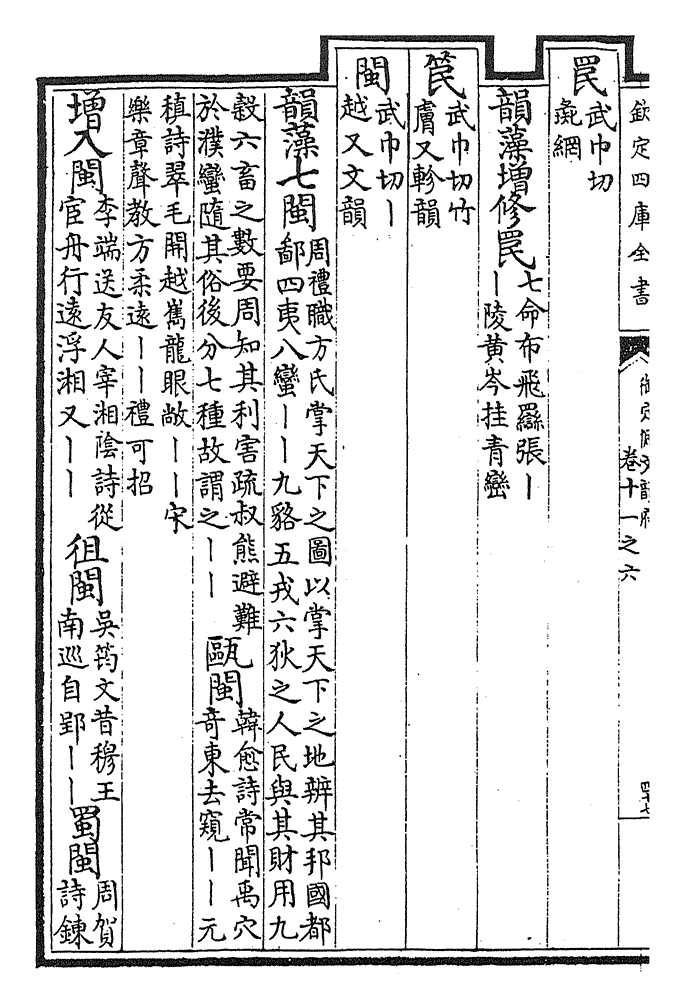 欽定四庫全書
御定佩文韻府
卷十一之六
罠
武巾切
彘網
韻藻增修罠
七命布飛羉張丨
丨陵黄岑挂青巒
笢
武巾切竹
膚又軫韻
閩
武巾切丨
越又文韻
韻藻七閩
周禮職方氏掌天下之圖以掌天下之地辨其邦國都
鄙四夷八蠻丨丨九貉五戎六狄之人民與其財用九
穀六畜之數要周知其利害疏叔熊避難
於濮蠻隨其俗後分七種故謂之丨丨
甌閩
韓愈詩常聞禹穴
奇東去窺丨丨元
稹詩翠毛開越嶲龍眼敞丨丨宋
樂章聲教方柔遠丨丨禮可招
增入閩
李端送友人宰湘陰詩從
宦舟行遠浮湘又丨丨
徂閩
吳筠文昔穆王
南巡自郢丨丨
蜀閩
周賀
詩鍊